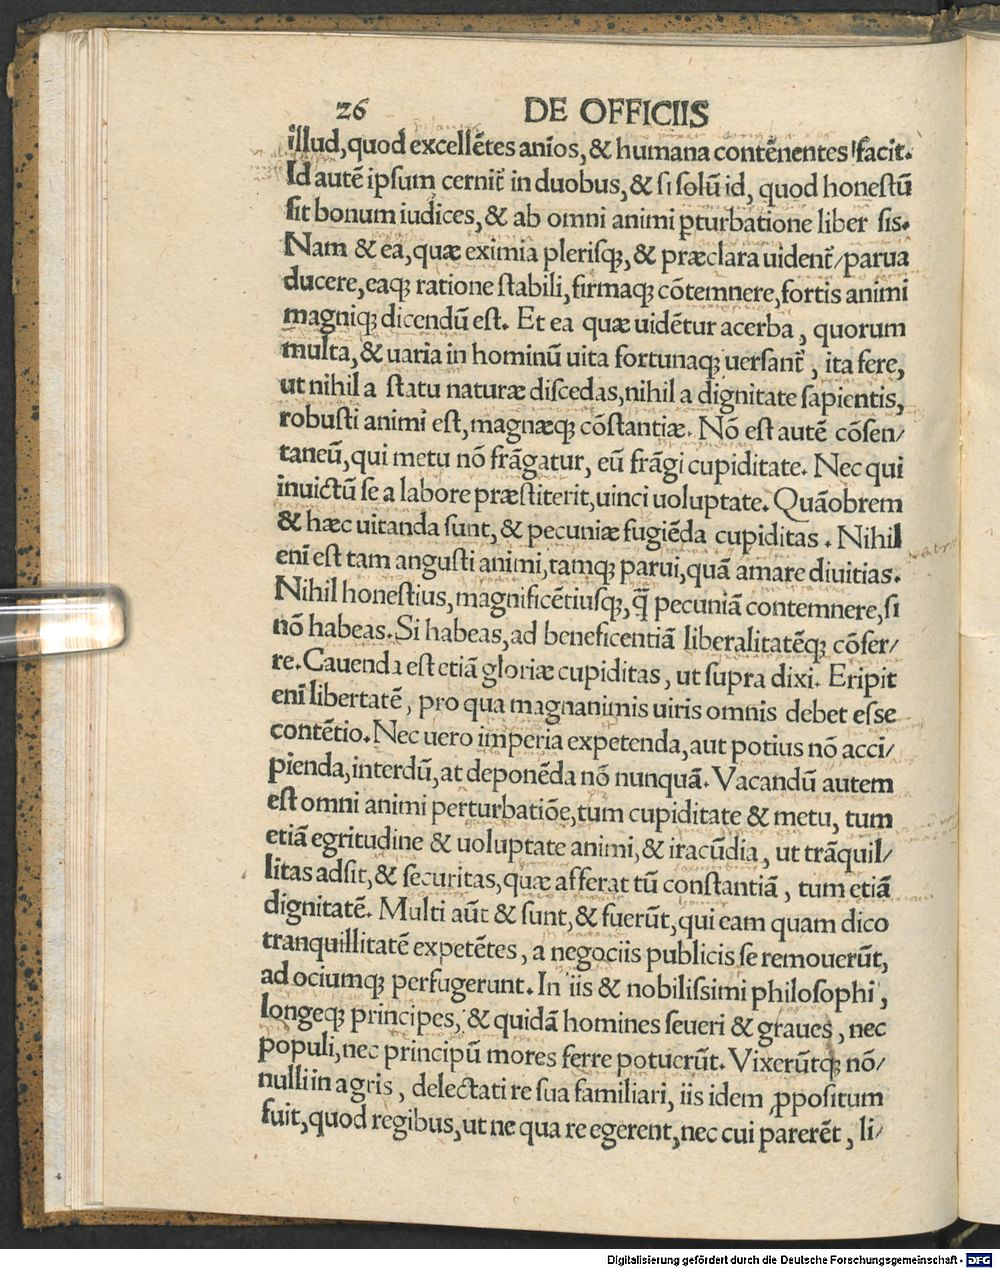 26 DE OFFICIIS
illud,quod excellētes anīos,& humana contēnentes facit.
Id autē ipsum cernit̃ in duobus,& si solū id, quod honestū
sit bonum iudices,& ab omni animi ꝑturbatione liber sis.
Nam & ea,quæ eximia plerisqꝫ,& præclara uident̃/parua
ducere,eaqꝫ ratione stabili,firmaqꝫ cōtemnere,fortis animi
magniqꝫ dicendū est. Et ea quæ uidētur acerba, quorum
multa,& uaria in hominū uita fortunaqꝫ uersant̃, ita fere,
ut nihil a statu naturæ discedas,nihil a dignitate sapientis,
robusti animi est,magnæqꝫ cōstantiæ. Nō est autē cōsen/
taneū,qui metu nō frāgatur, eū frāgi cupiditate. Nec qui
inuictū se a labore præstiterit,uinci uoluptate. Quāobrem
& hæc uitanda sunt,& pecuniæ fugiēda cupiditas. Nihil
enī est tam angusti animi,tamqꝫ parui,quā amare diuitias.
Nihil honestius,magnificētiusqꝫ,q̃̃ pecuniā contemnere,si
nō habeas.Si habeas,ad beneficentiā liberalitatēqꝫ cōfer/
re.Cauenda est etiā gloriæ cupiditas, ut supra dixi. Eripit
enī libertatē, pro qua magnanimis uiris omnis debet esse
contētio.Nec uero imperia expetenda,aut potius nō acci/
pienda,interdū,at deponēda nō nunquā. Vacandū autem
est omni animi perturbatiōe,tum cupiditate & metu, tum
etiā egritudine & uoluptate animi,& iracūdia, ut trāquil/
litas adsit,& securitas,quæ afferat tū constantiā, tum etiā
dignitatē. Multi aūt & sunt,& fuerūt,qui eam quam dico
tranquillitatē expetētes, a negociis publicis se remouerūt,
ad ociumqꝫ perfugerunt.In iis & nobilissimi philosophi,
longeqꝫ principes,& quidā homines seueri & graues, nec
populi,nec principū mores ferre potuerūt. Vixerūtqꝫ nō/
nulli in agris, delectati re sua familiari, iis idem ꝓpositum
fuit,quod regibus,ut ne qua re egerent,nec cui parerēt, li/
Digitalisierung gefördert durch die Deutsche Forschungsgemeinschaft - DFG